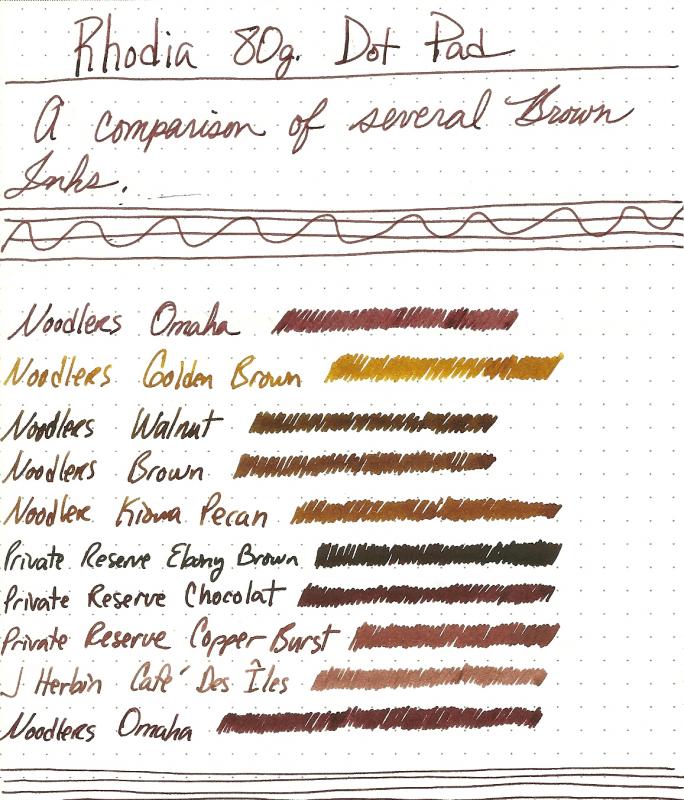 Rhodia 80g. Dot Pad
A comparison of several Brown
Inks.
Noodlers Omaha
Noodlers Golden Brown
Noodlers Walnut
Noodlers Brown
Noodler Kiowa Pecan
Private Reserve Ebony Brown
Private Reserve Chocolat
Private Reserve Copper Burst
J Herbin Café Des Îles
Noodlers Omaha